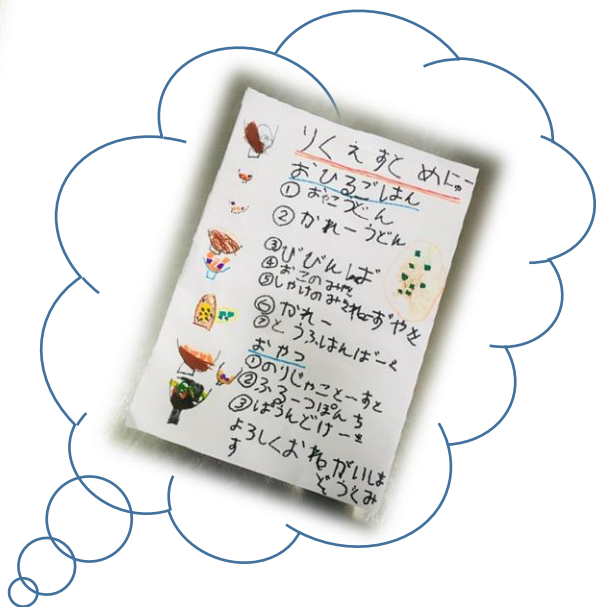 りくえすとめにゅー
おひるごはん
①おやこうどん
②かれーうどん
③びびんば
④おこのみやき
⑤しゃけのみそまねーずやき
⑥かれー
⑦とうふはんばーぐ
おやつ
①のりじゃことーすと
②ふるーつぽんち
③ぱうんどけーき
よろしくおねがいしま
す
ぞうぐみ